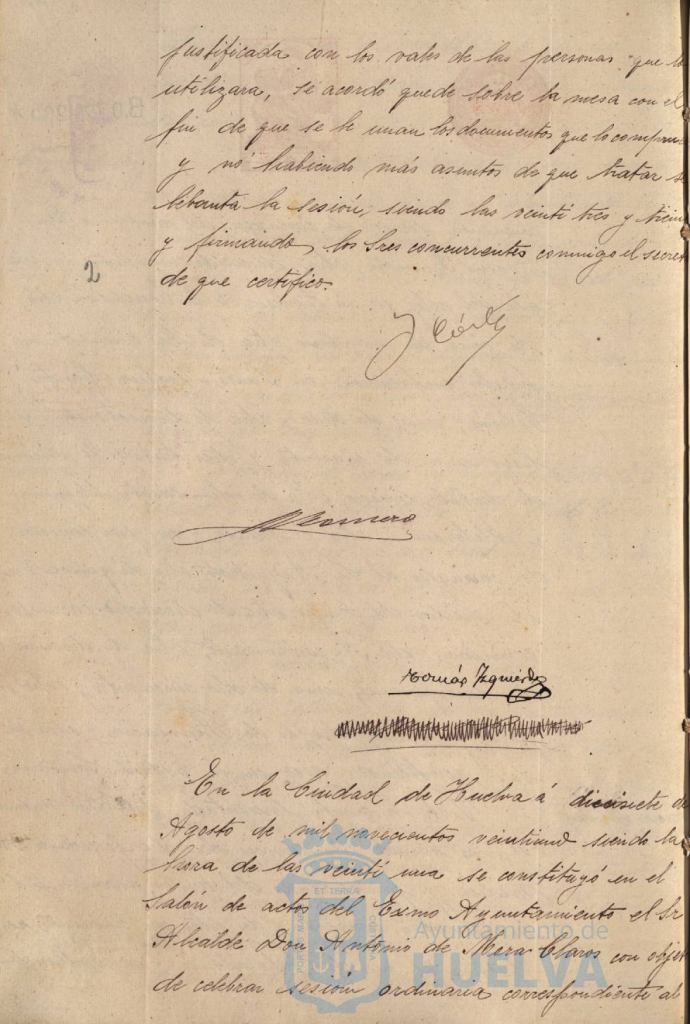 justificada con los vales de las personas que lo
utilizara, se acordó quede sobre la mesa con el
fin de que se le unan los documentos que lo comprue
y no habiendo más asuntos de que tratar se
lebanta la sesión, siendo las veinti tres y trein
y firmando, los Sres concurrentes conmigo el secret
de que certifico.
2
Romero
Tomás Izquierdo
En la Ciudad de Huelva á diecisiete de
Agosto de mil novecientos veintiuno siendo la
hora de las veinti una se constituyó en el
Salón de actos del Exmo Ayuntamiento el Sr
Alcalde Don Antonio de Mora Claros con objet
de celebrar sesión ordinaria correspondiente al
Ayuntamiento de
HUELVA